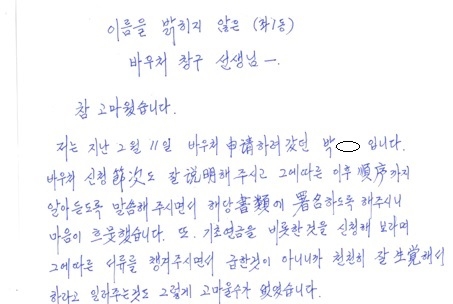 이름을 밝히지 않은 (좌1동)
바우처 창구 선생님 ㅡ.
참 고마웠습니다.
저는 지난 2월 11일 바우처 申請하러 갔던 박 입니다.
바우처 신청 節次도 잘 說明해 주시고 그에따른 이후 順序까지
알아듣도록 말씀해 주시면서 해당 書類에 署名하도록 해주시니
마음이 흐뭇했습니다. 또. 기초연금을 비롯한것을 신청해 보라며
그에따른 서류를 챙겨주시면서 급한것이 아니니까 천천히 잘 生覚해서
하라고 일러주는것도 그렇게 고마울수가 없었습니다.